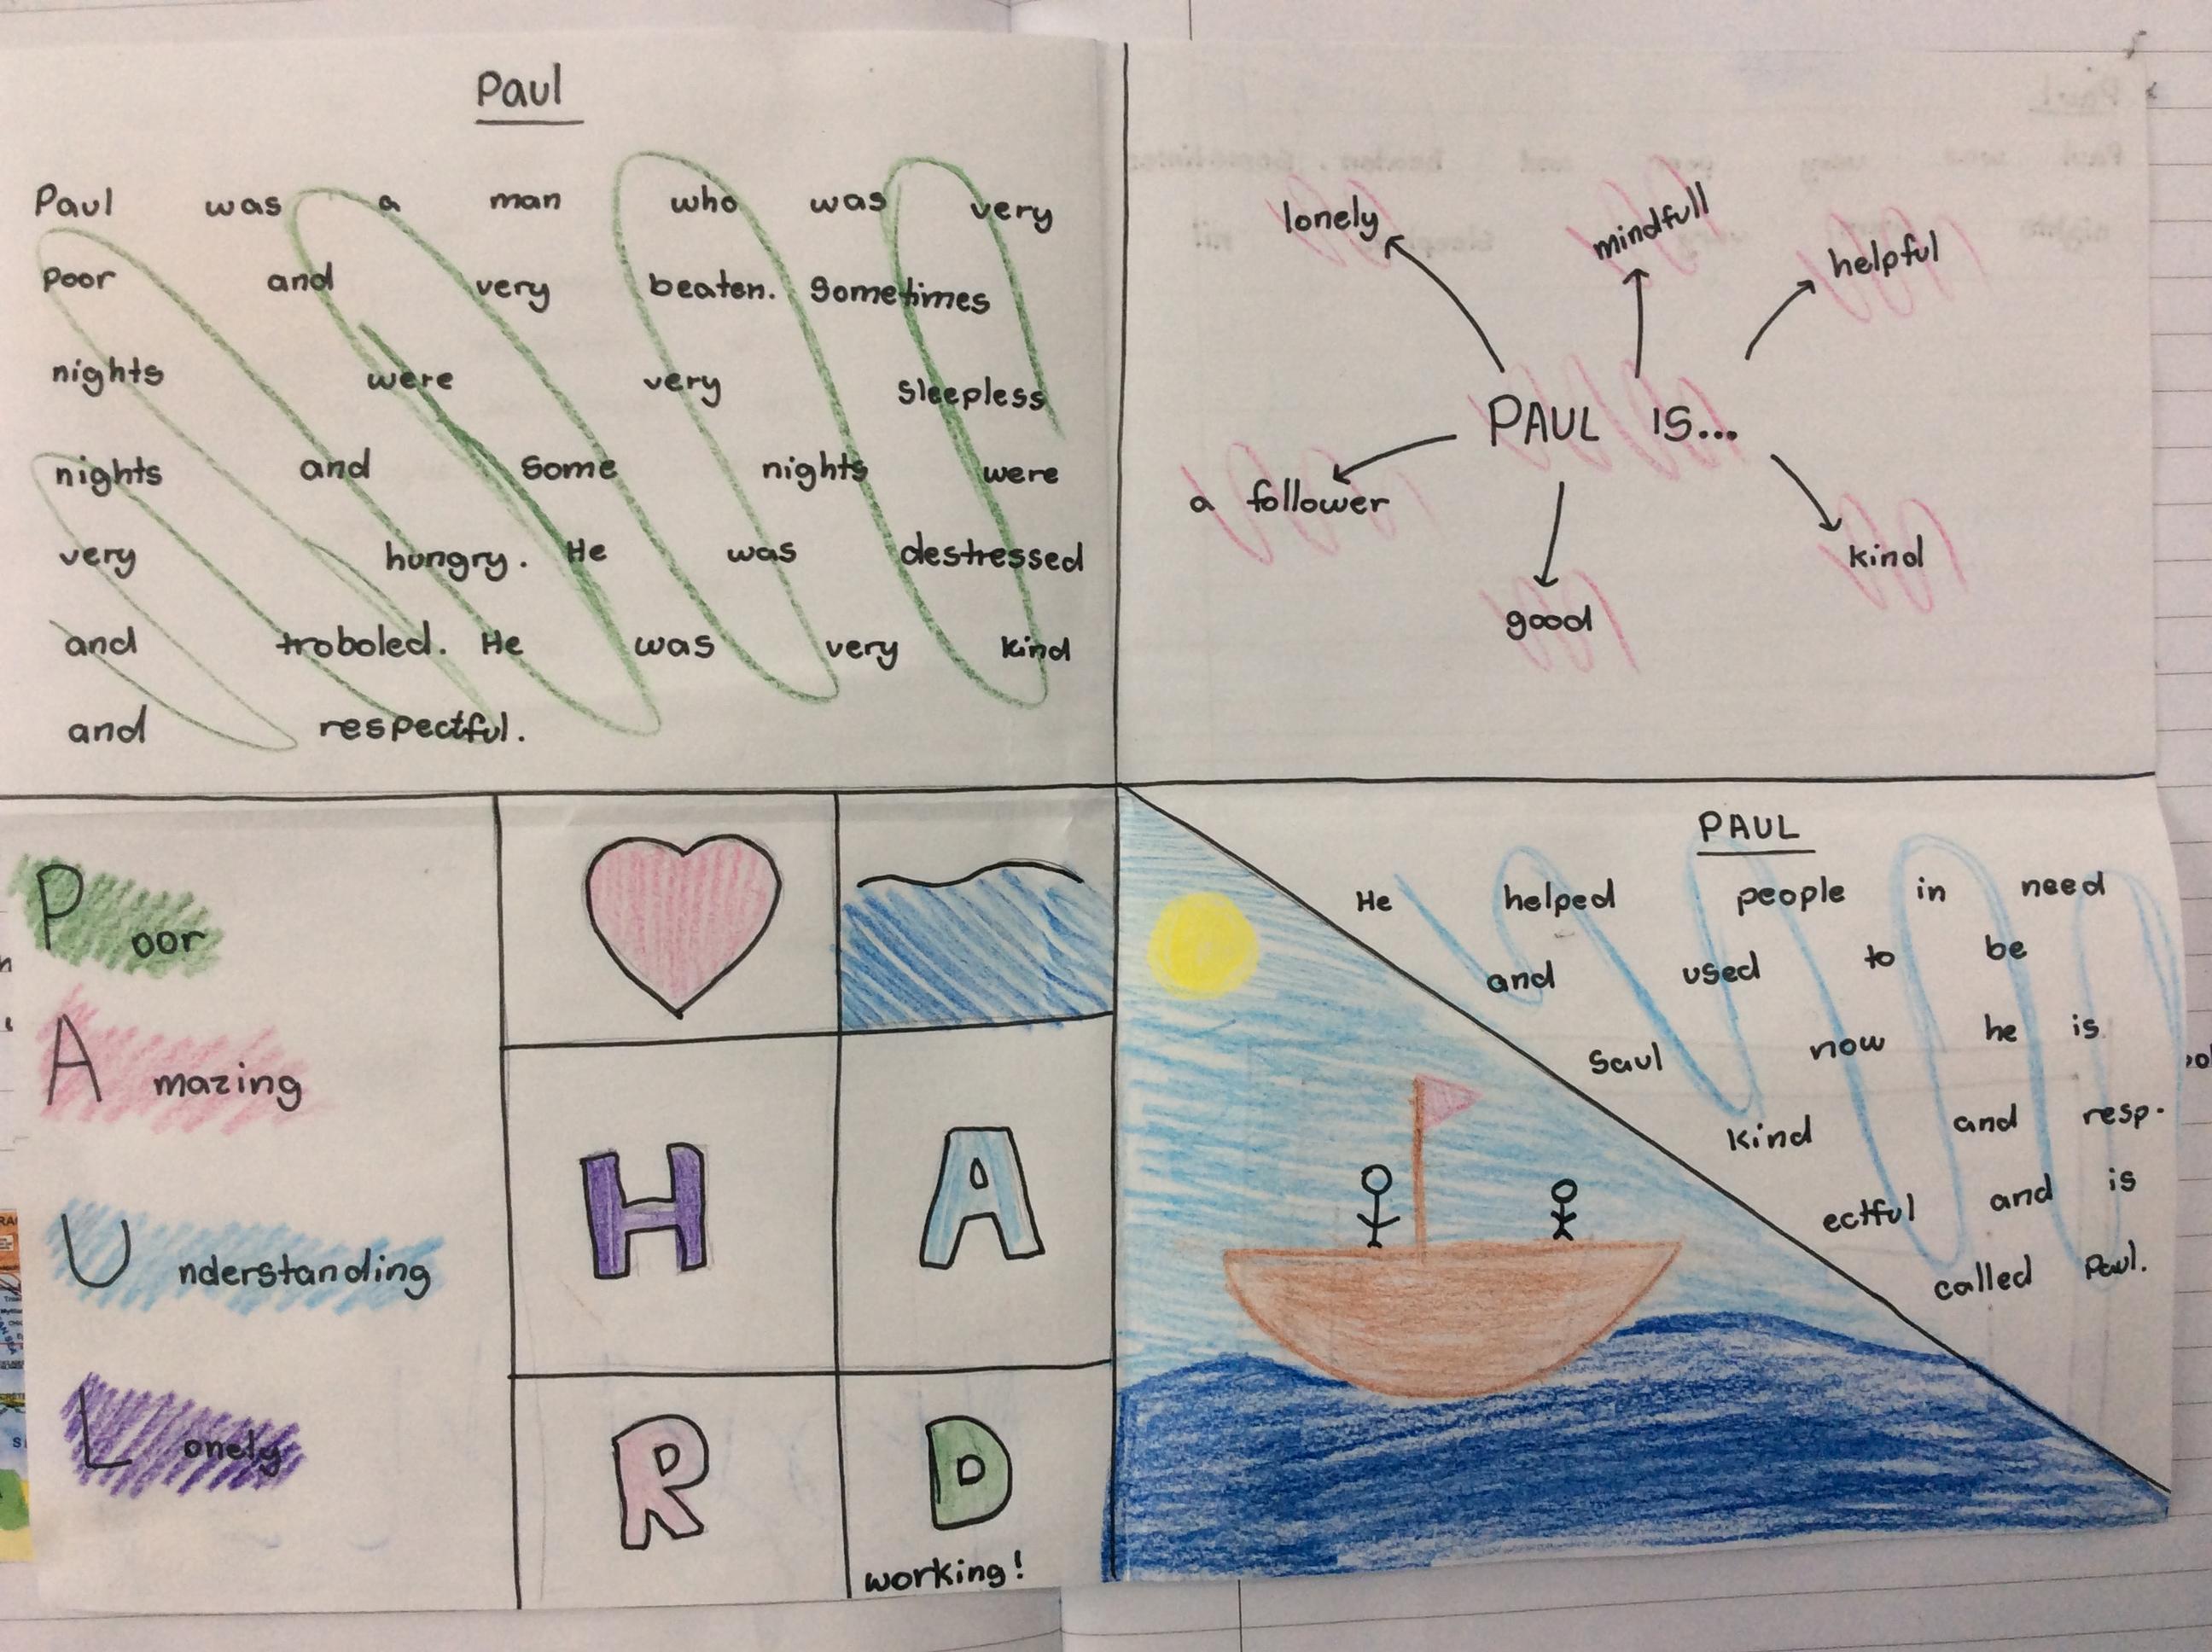 Paul
Paul was a man who was very
poor and very beaten. Sometimes
nights were very sleepless
nights and some nights were
very hungry. He was destressed
and troboled. He was very kind
and respectful.
lonely
mindfull
helpful
PAUL IS...
a follower
kind
good
Poor
Amazing
Understanding
Lonely
H A
R D
working!
PAUL
He helped people in need
and used to be
Saul now he is
kind and resp-
ectful and is
called Paul.